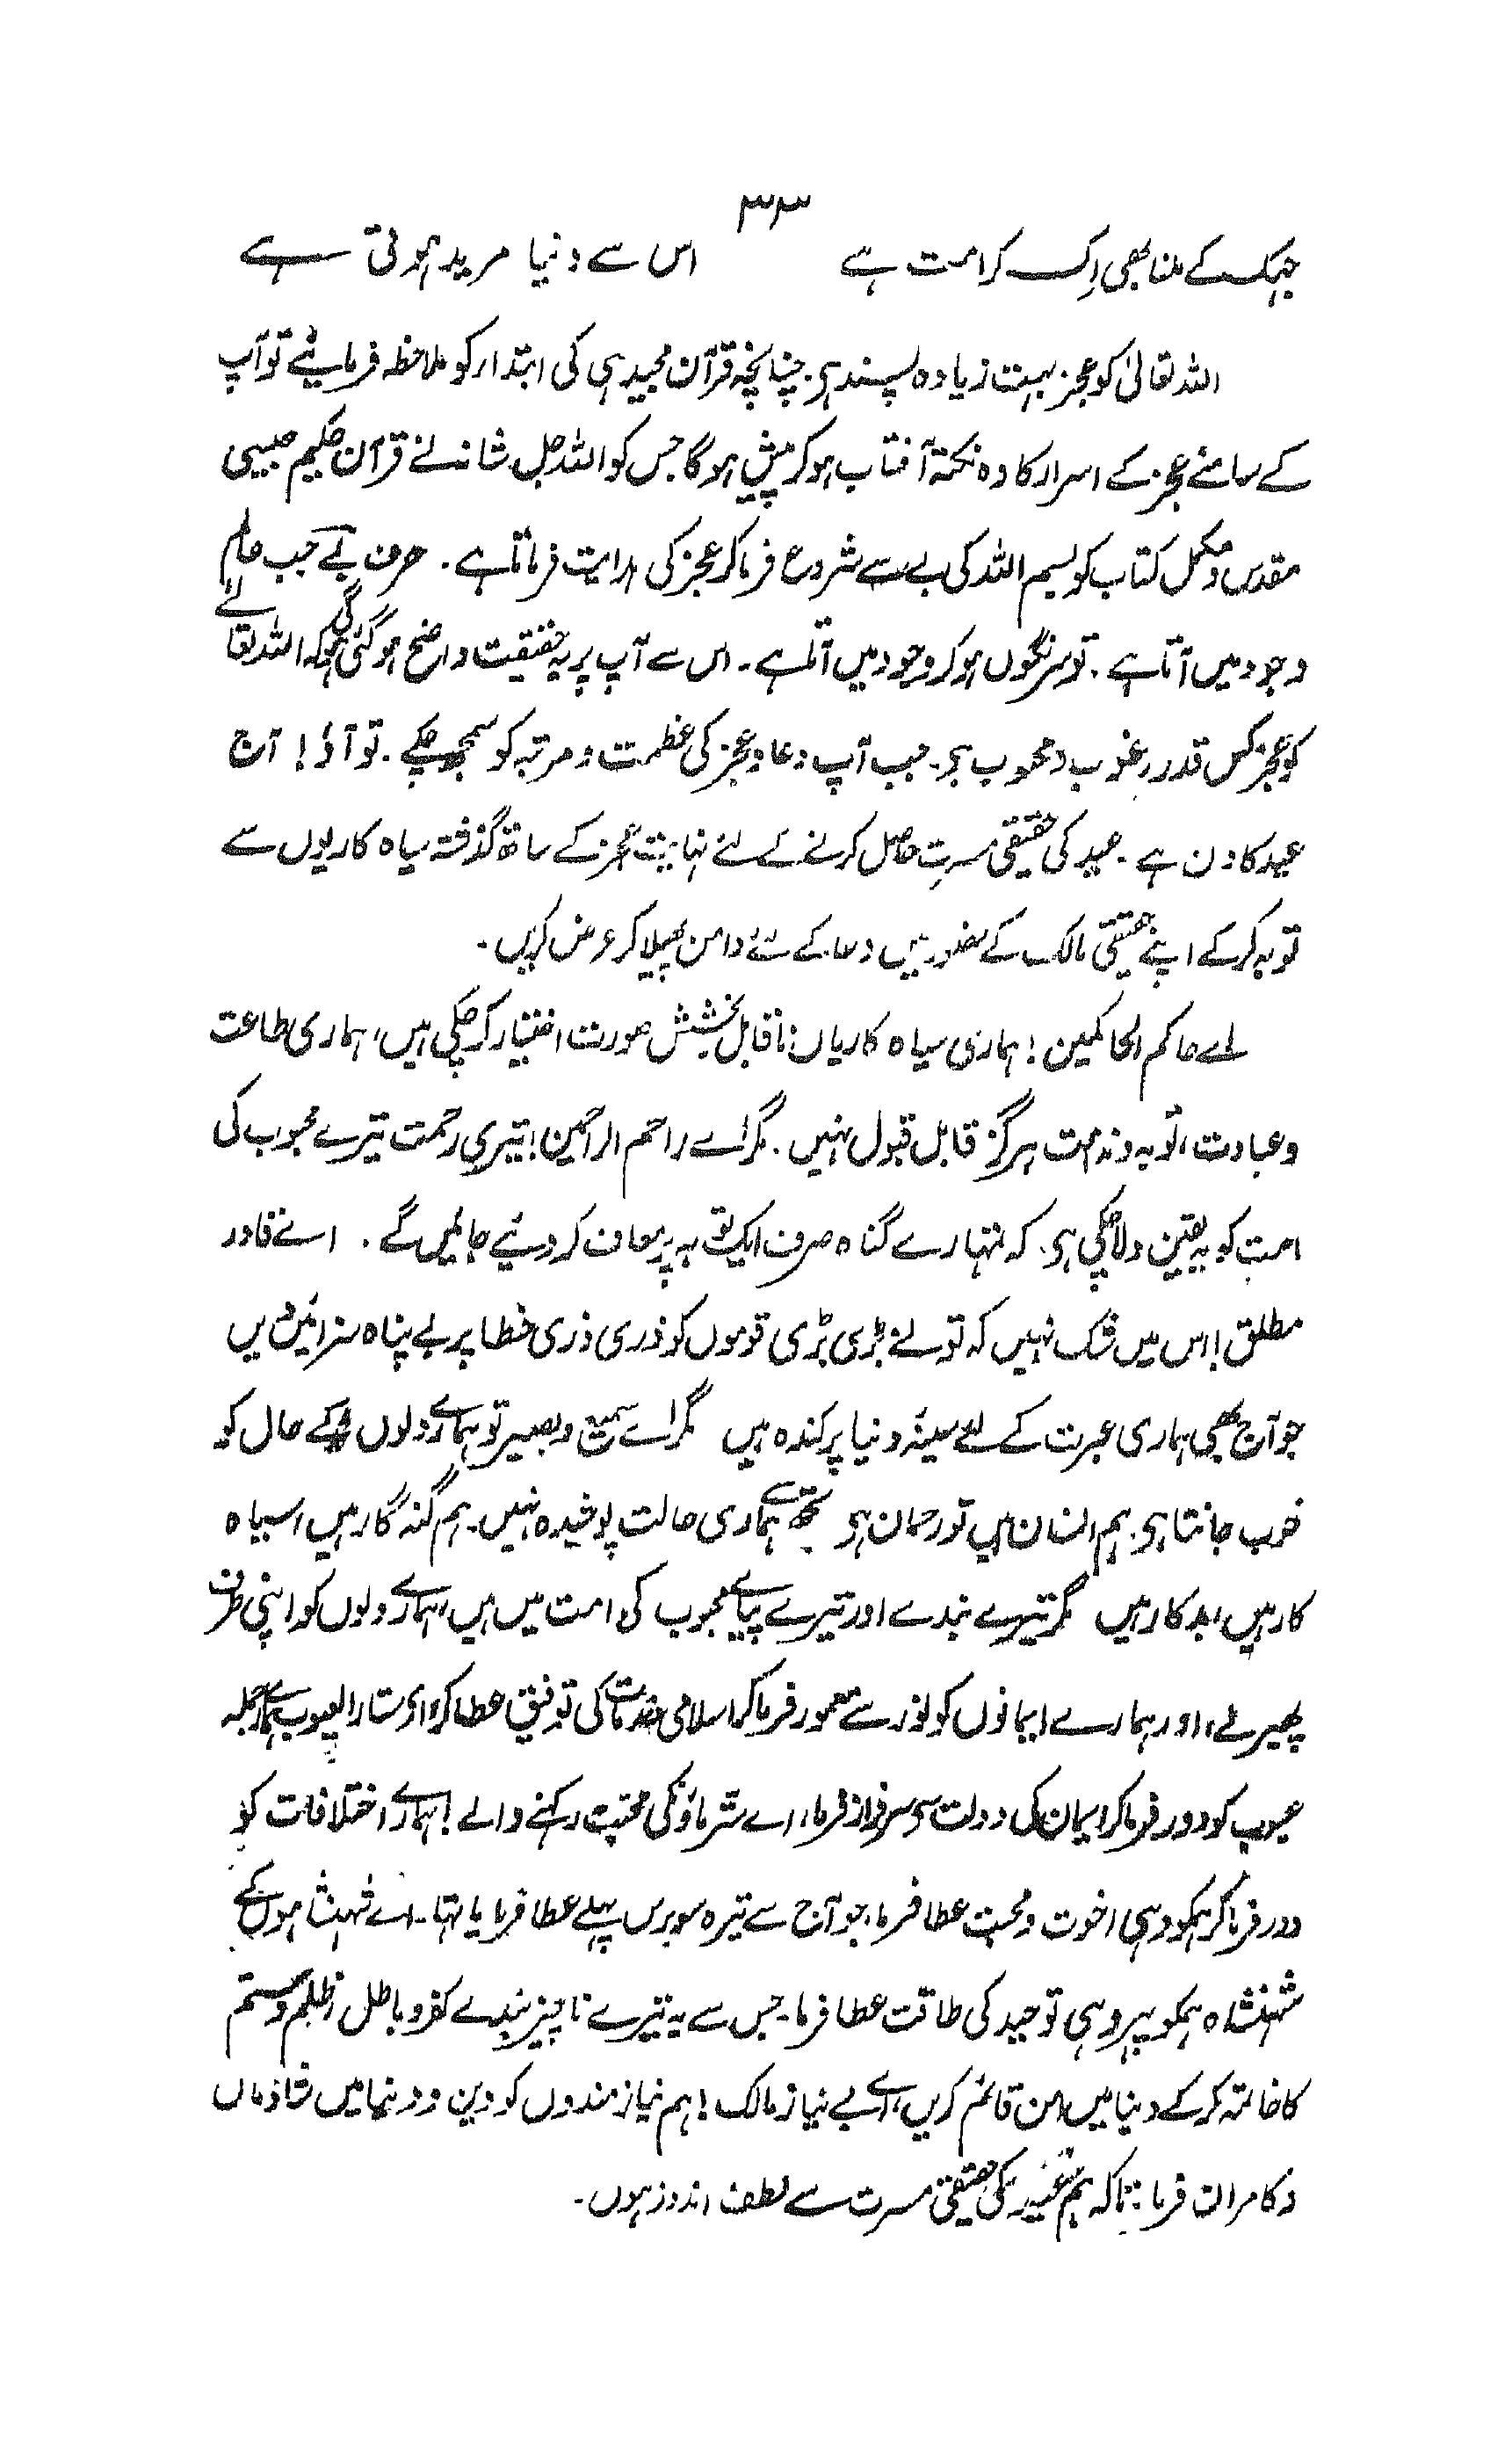 ۳۳
جھک کے ملنا بھی اِک کرامت ہے اس سے دنیا مرید ہوتی ہے
اللہ تعالیٰ کو عجز بہت زیادہ پسند ہے۔ چنانچہ قرآن مجید ہی کی ابتدار کو ملاحظہ فرمائیے تو آپ
کے سامنے عجز کے اسرار کا وہ نکتہ آفتاب ہو کر پیش ہوگا جس کو اللہ جل شانہ نے قرآن حکیم جیسی
مقدس و مکمل کتاب کو بسم اللہ کی بے سے شروع فرما کر عجز کی ہدایت فرماتا ہے۔ حرف بے جب عالم
وجود میں آتا ہے۔ تو سرنگوں ہو کر وجود میں آتا ہے۔ اس سے آپ پر یہ حقیقت واضح ہو گئی ہوگی کہ اللہ تعالےٰ
کو عجز کس قدر مرغوب و محبوب ہے۔ جب آپ دعا و عجز کی عظمت و مرتبہ کو سمجھ چکے۔ تو آؤ! آج
عید کا دن ہے۔ عید کی حقیقی مسرت حاصل کرنے کے لئے نہایت عجز کے ساتھ گذشتہ سیاہ کاریوں سے
توبہ کرکے اپنے حقیقی مالک کے حضور میں دعا کے لئے دامن پھیلا کر عرض کریں۔
اے حاکم الحاکمین! ہماری سیاہ کاریاں ناقابل بخشش صورت اختیار کر چکی ہیں، ہماری طاعت
و عبادت، توبہ و ندامت ہرگز قابل قبول نہیں۔ مگر اے راحم الراحمین! تیری رحمت تیرے محبوب کی
امت کو یہ یقین دلا چکی ہے۔ کہ تمہارے گناہ صرف ایک توبہ پر معاف کر دیئے جائیں گے۔ اے قادر
مطلق! اس میں شک نہیں کہ تو نے بڑی بڑی قوموں کو ذری ذری خطا پر بے پناہ سزائیں دیں
جو آج بھی ہماری عبرت کے لئے سینۂ دنیا پر کندہ ہیں مگر اے سمیع و بصیر تو ہمارے دلوں کے حال کو
خوب جانتا ہے۔ ہم انسان ہیں تو رحمان ہے تجھ سے ہماری حالت پوشیدہ نہیں۔ ہم گنہ گار ہیں، سیاہ
کار ہیں، بدکار ہیں مگر تیرے بندے اور تیرے پیارے محبوب کی امت میں ہیں، ہمارے دلوں کو اپنی طرف
پھیر لے، اور ہمارے ایمانوں کو نور سے معمور فرما کر اسلامی خدمات کی توفیق عطا کر، اے ستار العیوب ہمارے جملہ
عیوب کو دور فرما کر ایمان کی دولت سے سرفراز فرما، اے ستر ماؤں کی محبت رکھنے والے! ہمارے اختلافات کو
دور فرما کر ہمکو وہی اخوت و محبت عطا فرما، جو آج سے تیرہ سو برس پہلے عطا فرمایا تھا۔ اے شہنشاہوں کے
شہنشاہ ہمکو پھر وہی توحید کی طاقت عطا فرما۔ جس سے یہ تیرے ناچیز بندے کفر و باطل، ظلم و ستم
کا خاتمہ کرکے دنیا میں امن قائم کریں، اے بے نیاز مالک! ہم نیاز مندوں کو دین و دنیا میں شادماں
و کامران فرما: تاکہ ہم عید کی حقیقی مسرت سے لطف اندوز ہوں۔